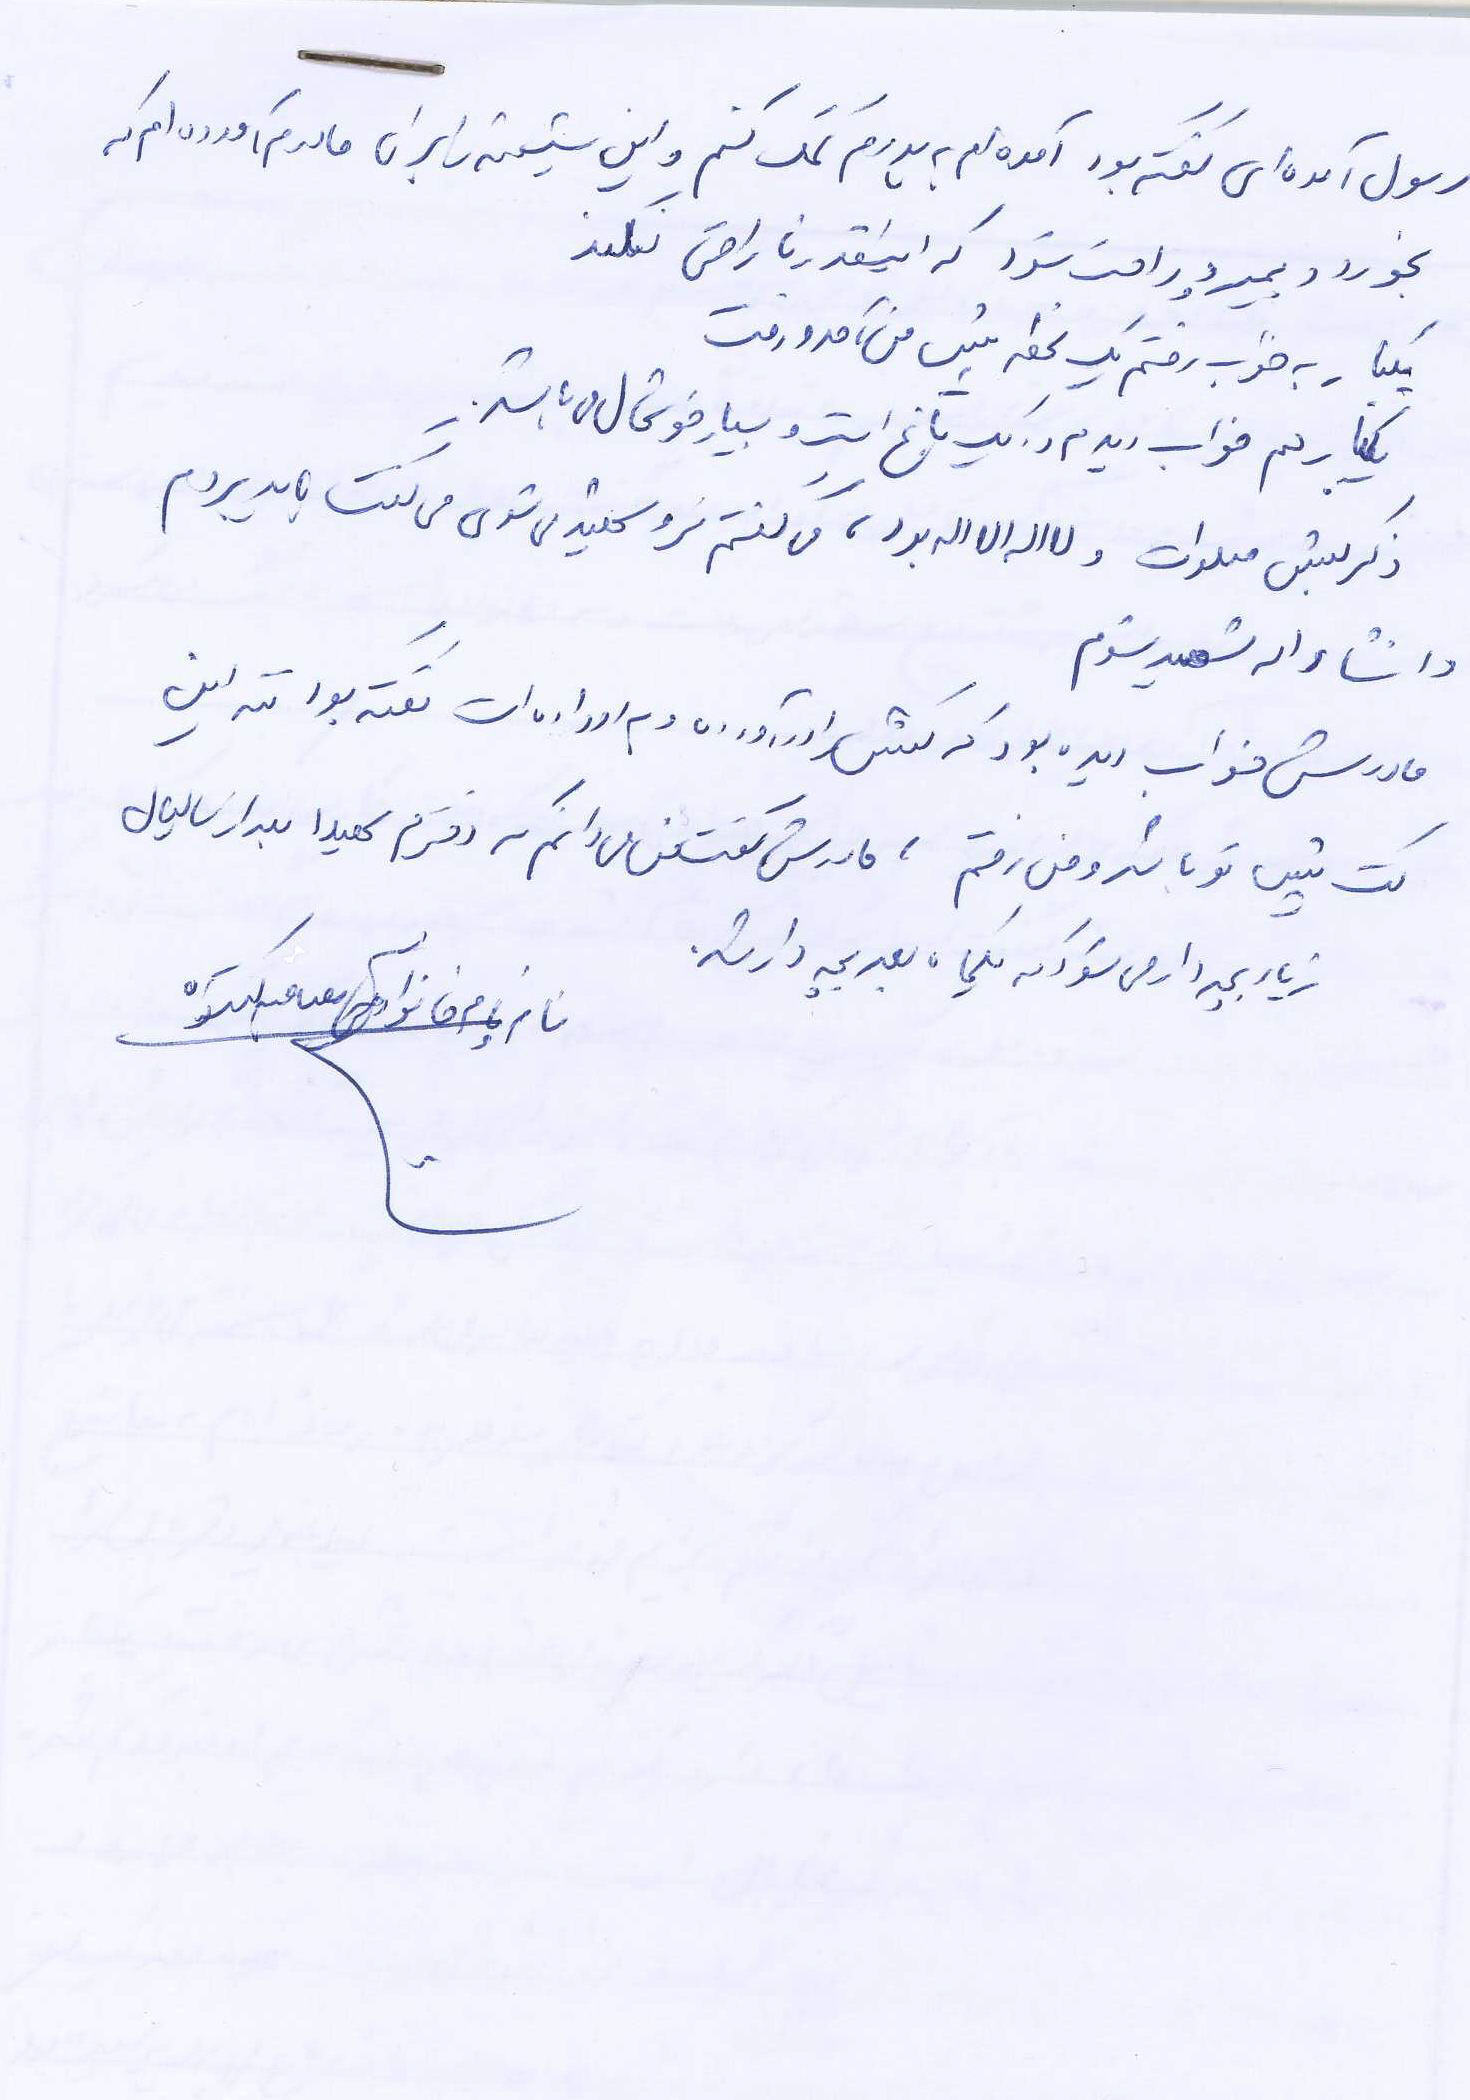 رسول آمده‌ای گفته بود آمده‌ام به پدرم کمک کنم و این شیشه را برای مادرم آورده‌ام که
بخورد و بمیرد و راحت شود که اینقدر ناراحتی نکند
یکبار به خواب رفتم یک لحظه پیش من آمد و رفت
یکبار هم خواب دیدم در یک باغ است و بسیار خوشحال می‌باشد.
ذکر لبش صلوات و لااله الا اله بود، می گفتم نرو شهید می شوی می گفت باید بروم
و انشاء اله شهید شوم
مادرش خواب دیده بود که کتش را در آورده و به او داده است گفته بود ننه این
کت پیش تو باشد و من رفتم، مادرش گفت من می‌دانم که دخترم بعد از سالیان
زیاد بچه دار می شود که یکماه بعد بچه دار شد.